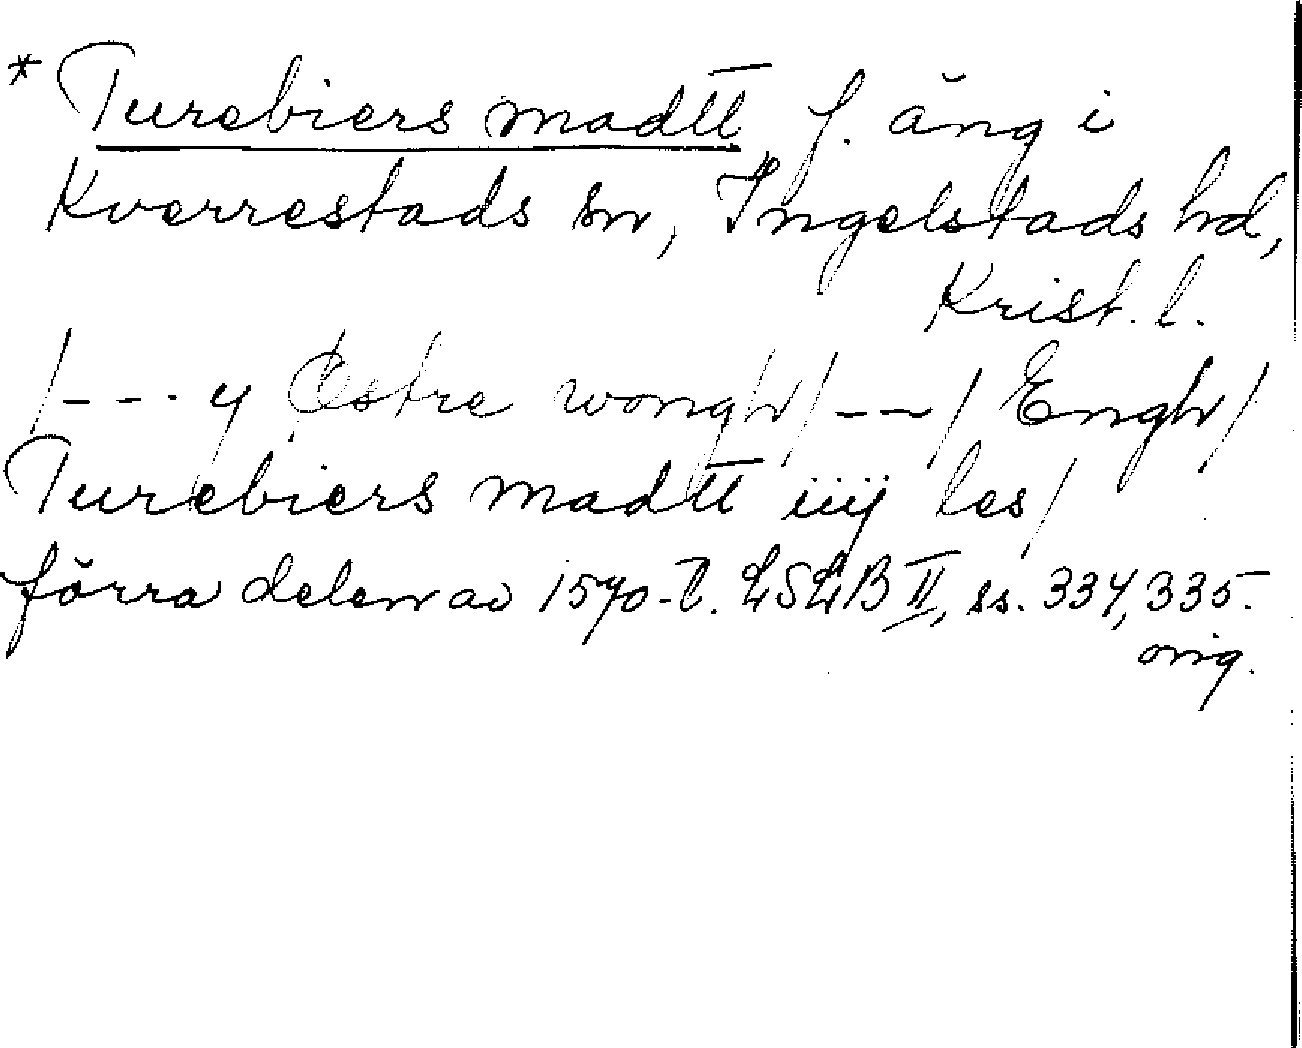 * Turebiers madtt f. äng i
Kverrestads sn, Ingelstads hd,
Krist. l.
/--- y Østre wongh/ --/ Engh/
Turebiers madtt iiij les/
förra delen av 1570-t. LSLB II, ss. 334, 335.
orig.